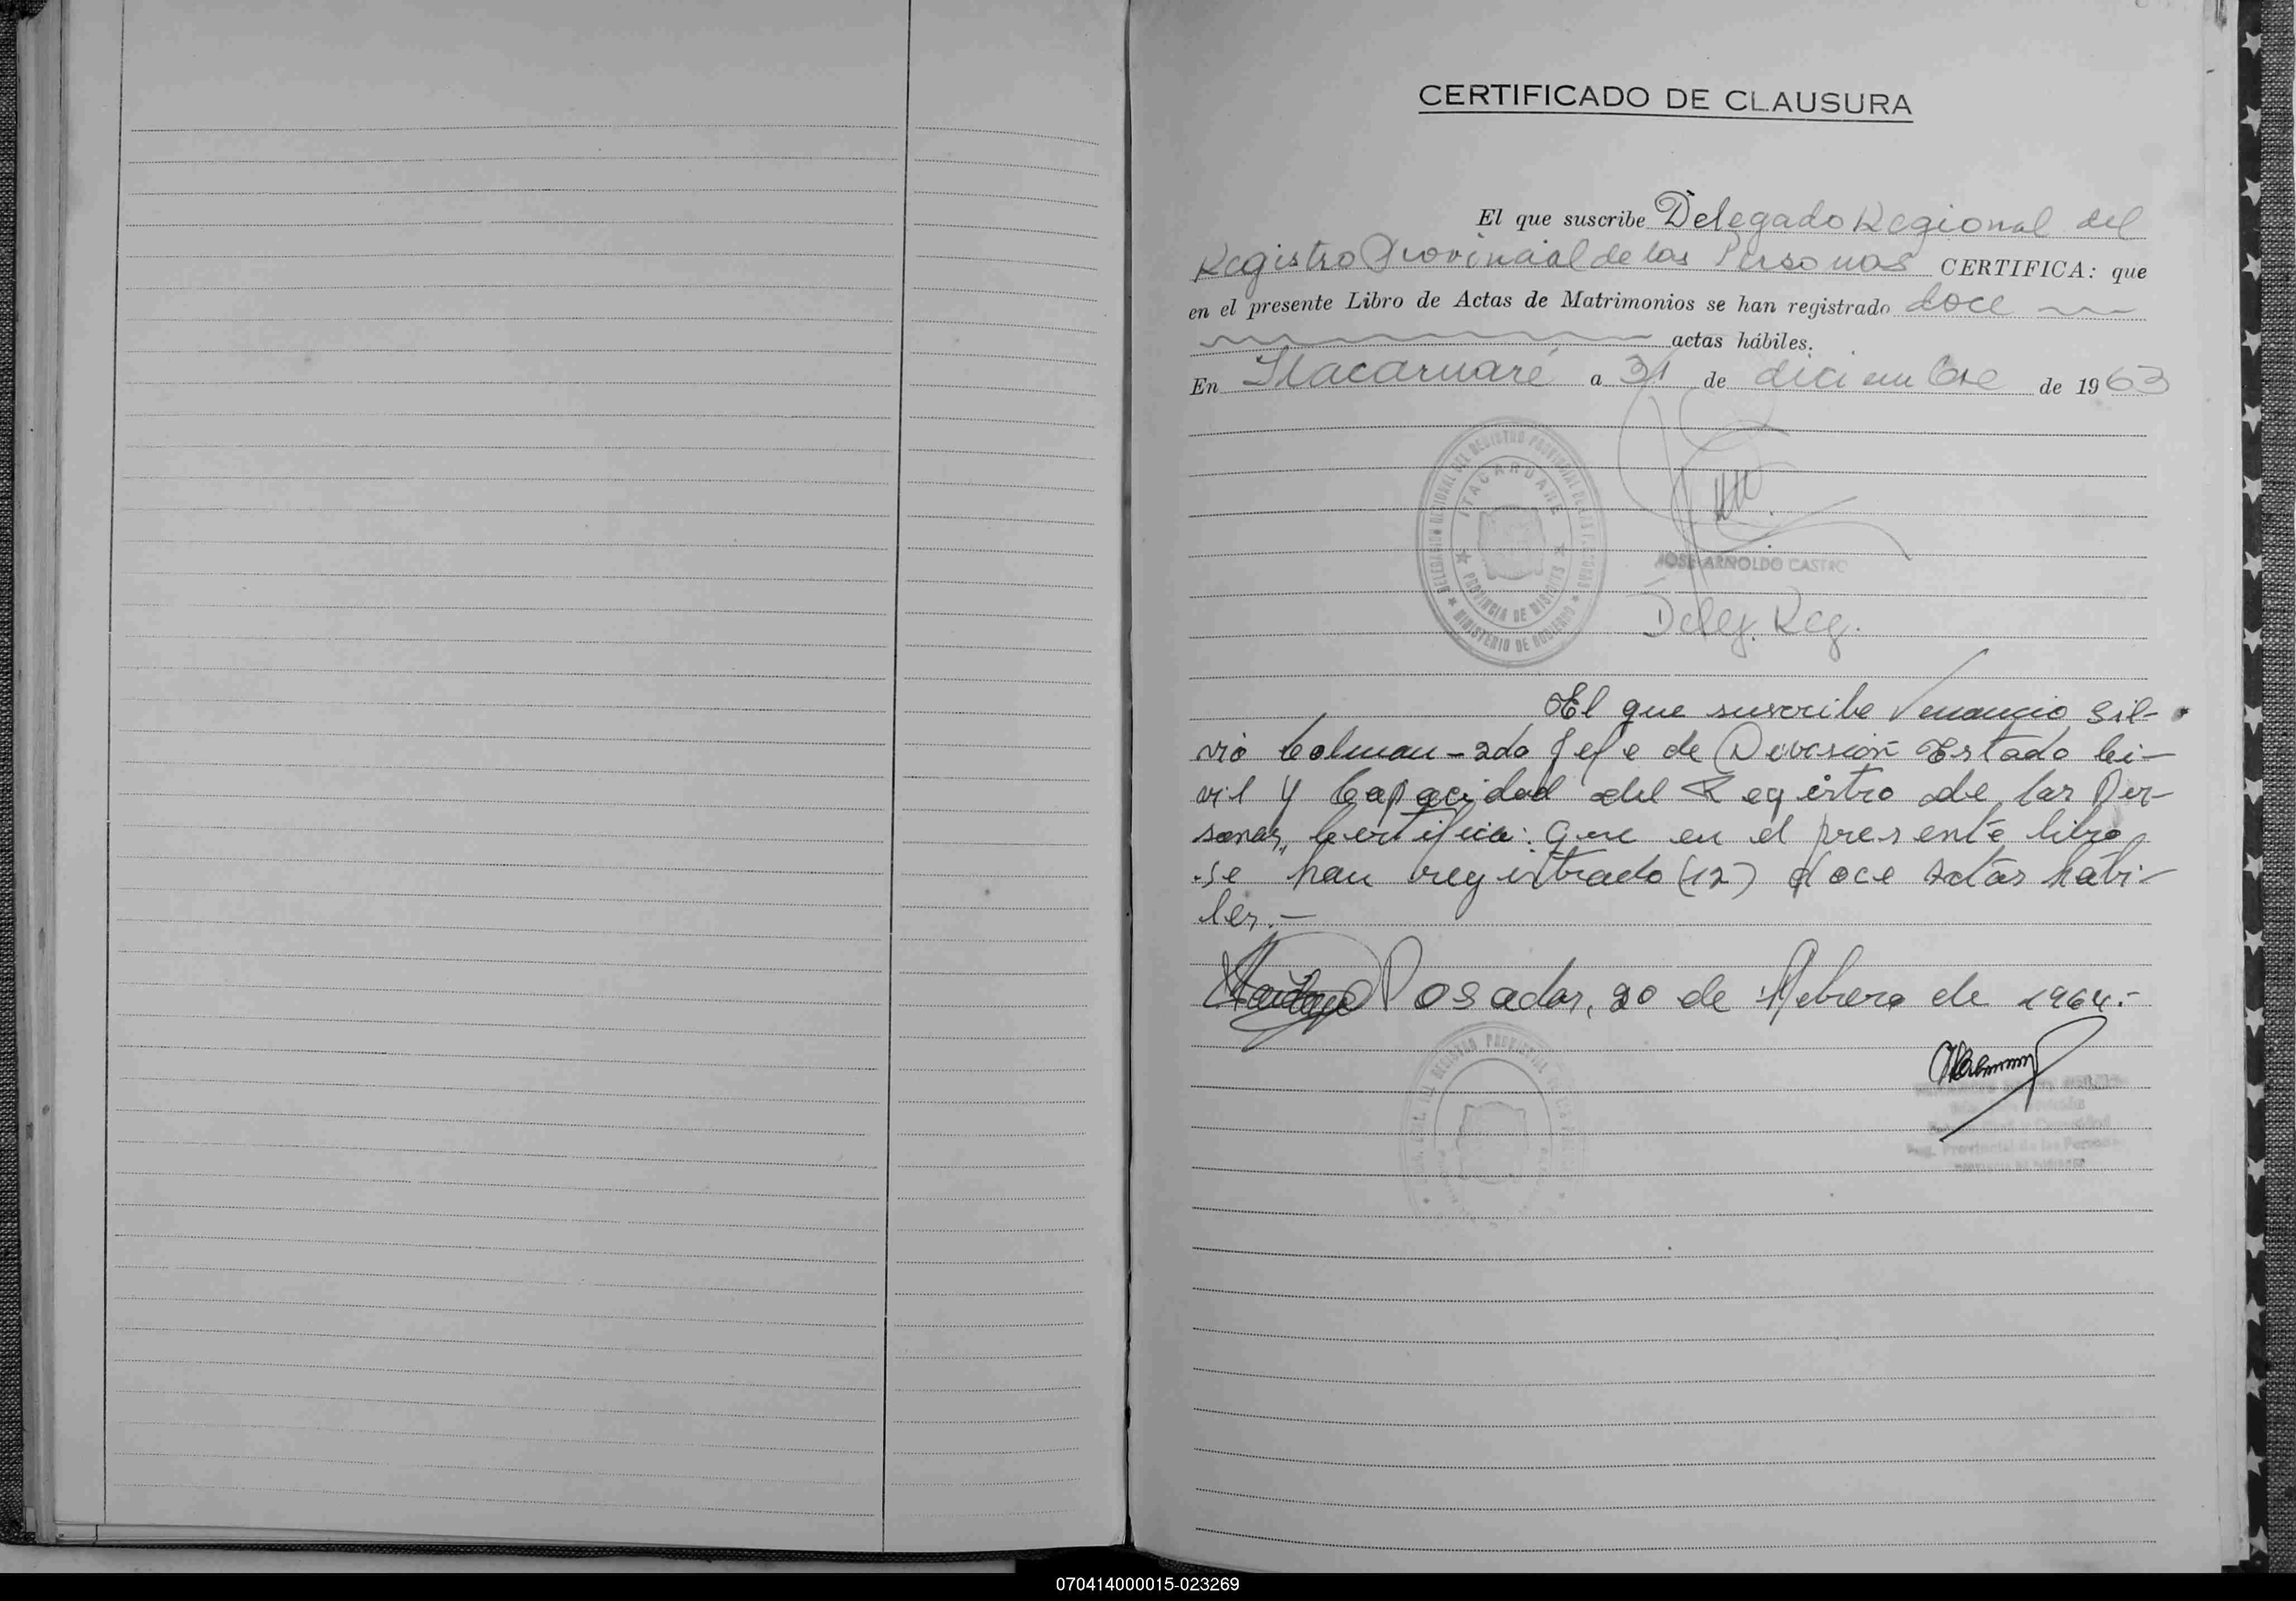 CERTIFICADO DE CLAUSURA
El que suscribe Delegado Regional del
Registro Provincial de las Personas CERTIFICA: que
en el presente Libro de Actas de Matrimonios se han registrado doce
actas hábiles.
En Itacaruaré a 31 de diciembre de 1963
DELEGACION REGIONAL DEL REGISTRO PROVINCIAL DE LAS PERSONAS
ITACARUARE
PROVINCIA DE MISIONES
MINISTERIO DE GOBIERNO
JOSE ARNOLDO CASTRO
Deleg. Reg.
El que suscribe Venancio Sil-
vio Colman-2do Jefe de Division Estado Ci-
vil y Capacidad del Registro de las Per-
sonas, Certifica: Que en el presente libro
se han registrado (12) doce actas hábi-
les.-
Posadas, 20 de Febrero de 1964.-
REGISTRO PROVINCIAL
Reg. Provincial de las Personas
PROVINCIA DE MISIONES
070414000015-023269